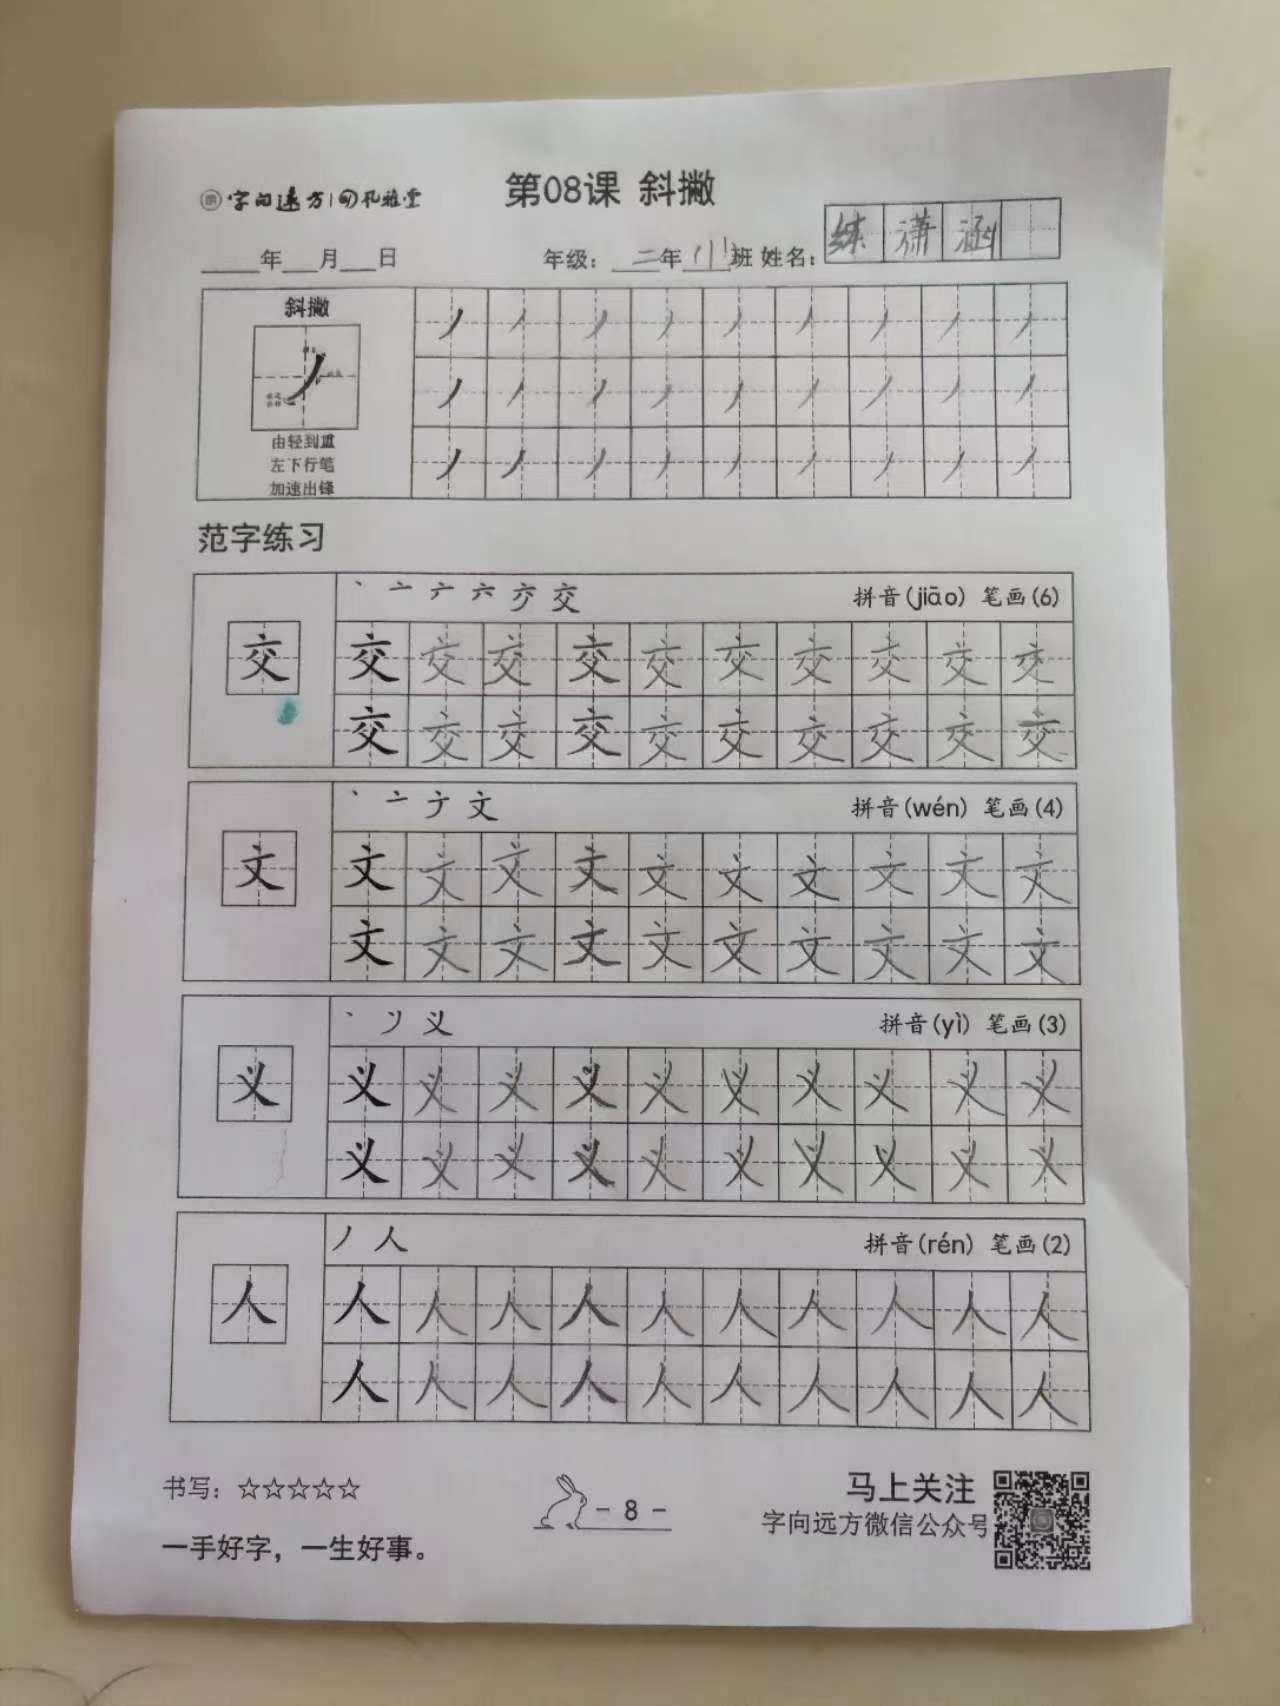 字向远方 孔雅堂
第08课 斜撇
年 月 日 年级：二年(1)班 姓名：练潇涵
斜撇
由轻到重
左下行笔
加速出锋
丿丿丿丿丿丿丿丿丿
丿丿丿丿丿丿丿丿丿
丿丿丿丿丿丿丿丿丿
范字练习
交
丶 亠 六 交 拼音(jiāo) 笔画(6)
交交交交交交交交交交
交交交交交交交交交交
文
丶 亠 文 拼音(wén) 笔画(4)
文文文文文文文文文文
文文文文文文文文文文
义
丶 义 拼音(yì) 笔画(3)
义义义义义义义义义义
义义义义义义义义义义
人
丿 人 拼音(rén) 笔画(2)
人人人人人人人人人人
人人人人人人人人人人
书写：☆☆☆☆☆
一手好字，一生好事。
- 8 -
马上关注
字向远方微信公众号